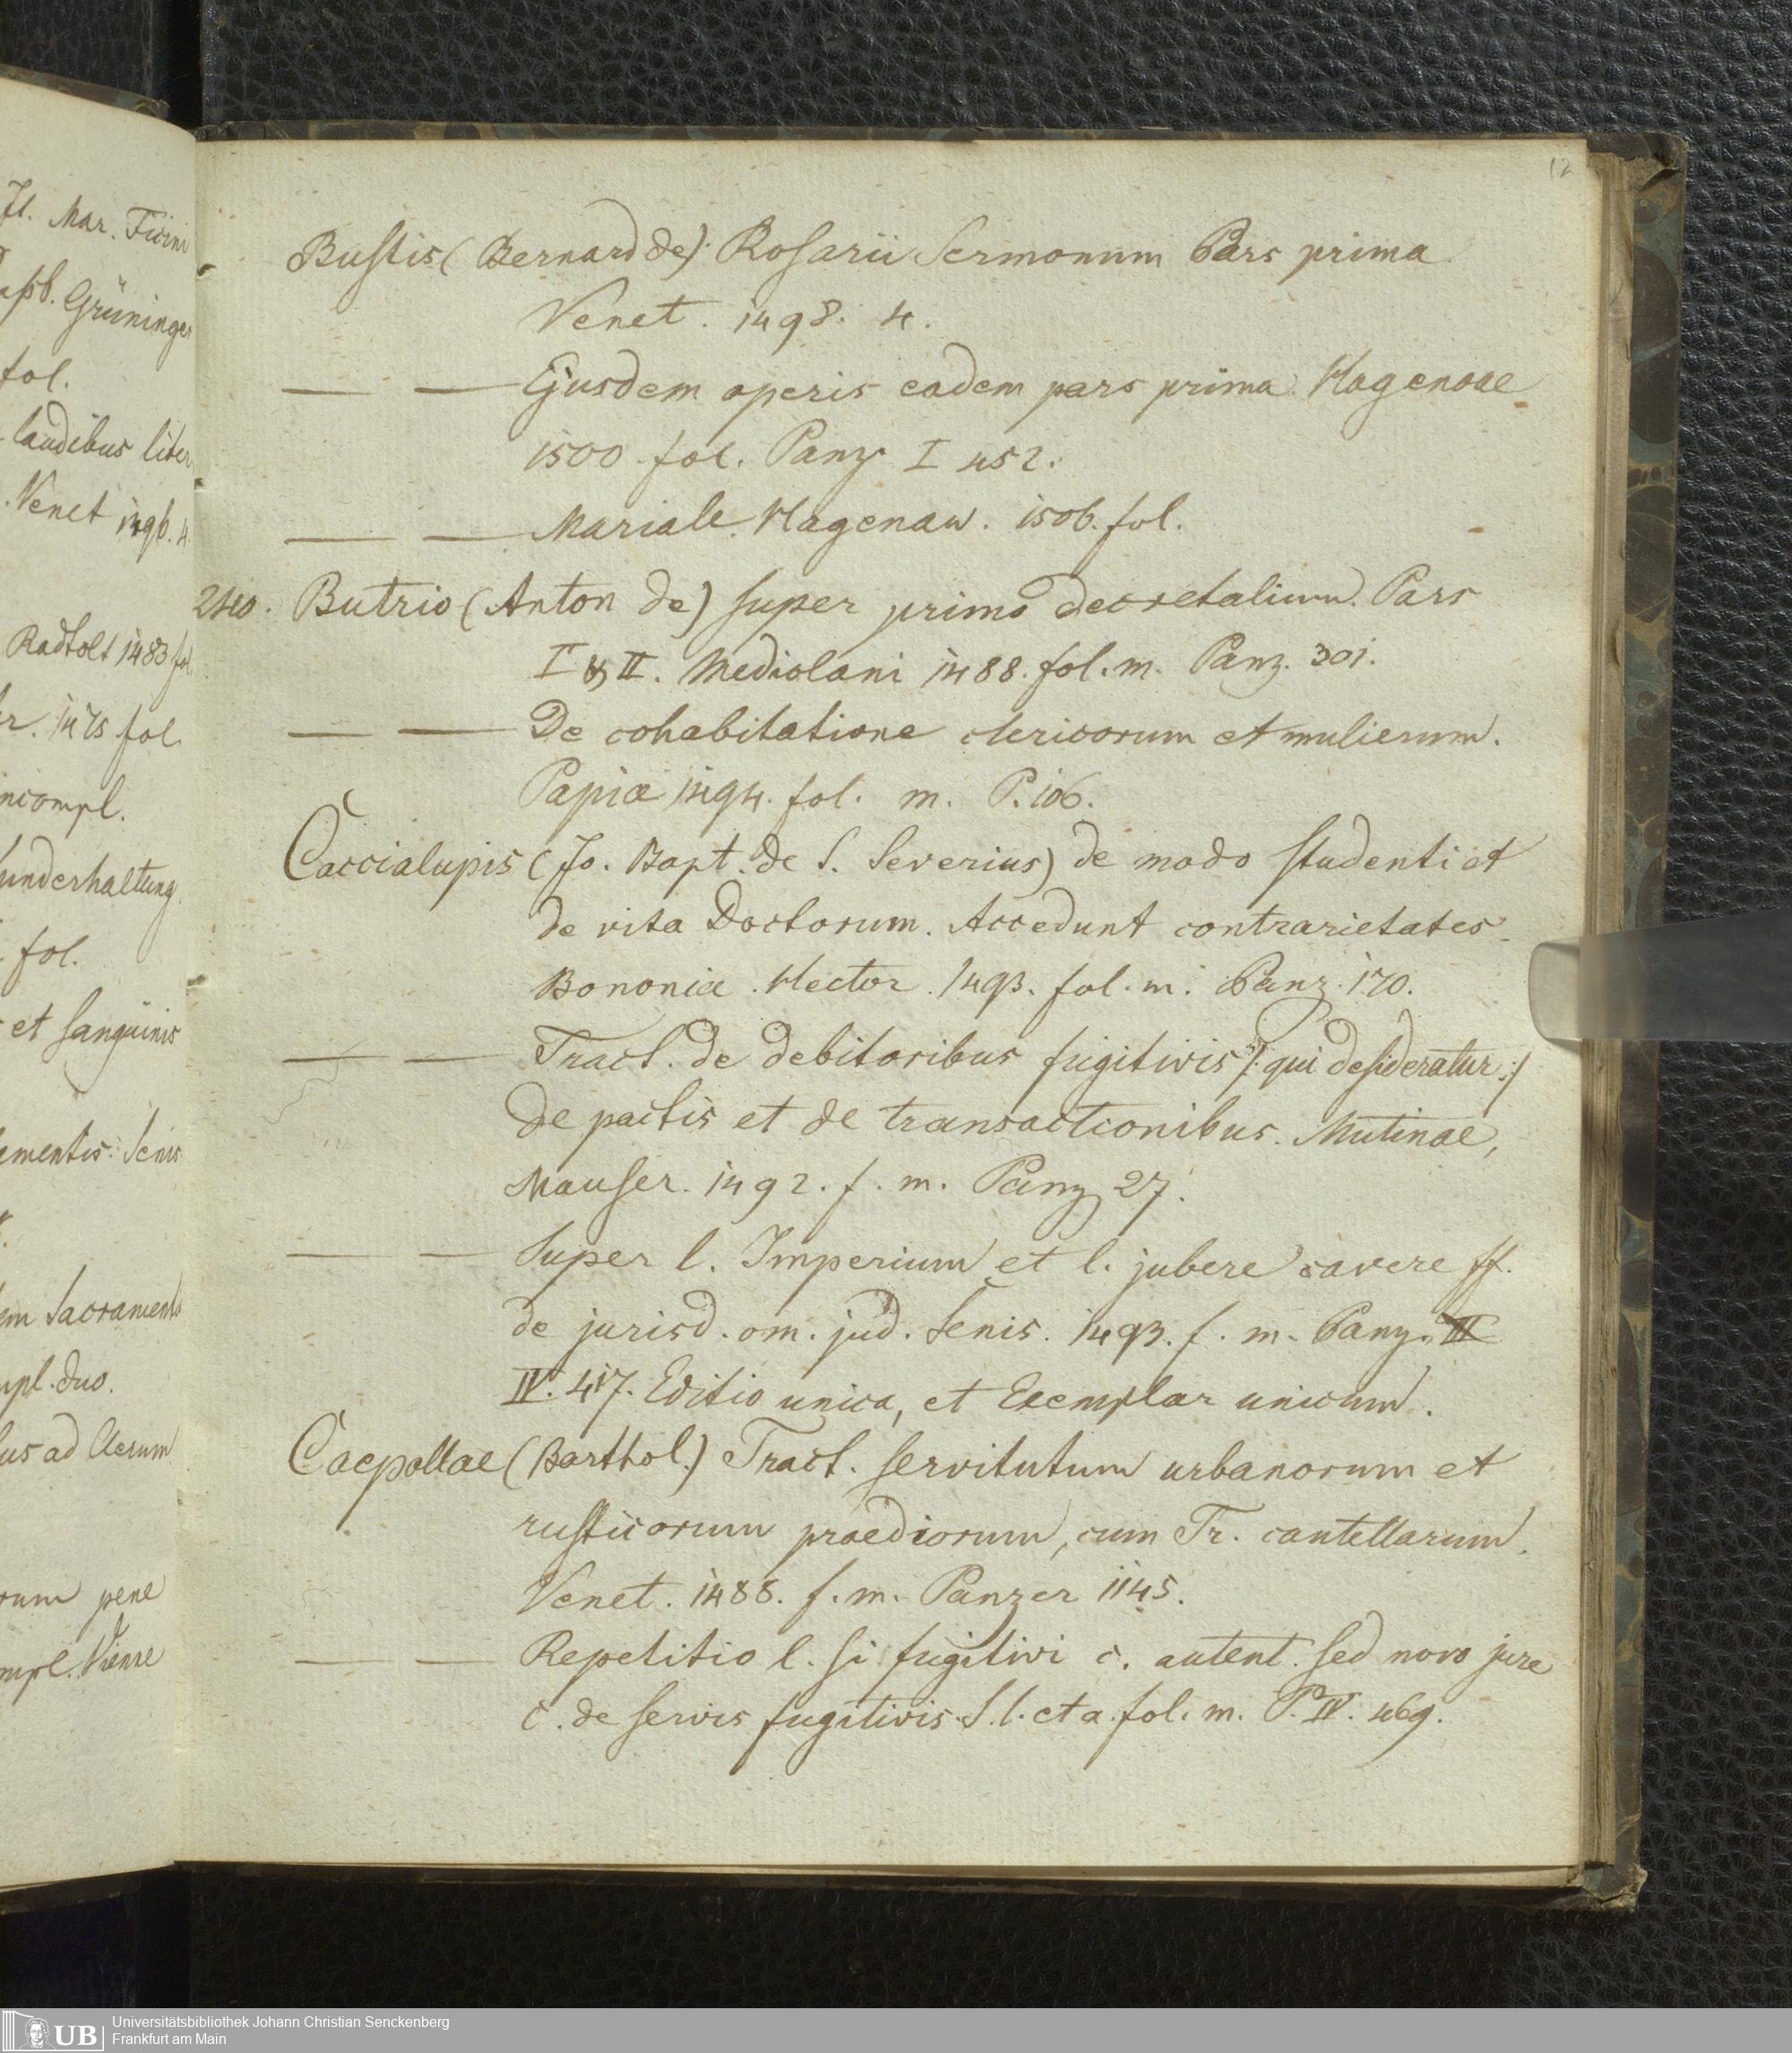 Jl. Mar. Ficini
Grüninger
fol.
laudibus liter
Venet 1496. 4.
Radtolt 1483 fol.
1475 fol
incompl.
underhaltung
fol.
et sanguinis
ementis: Senis
em Sacramento
mpl. duo.
ius ad Clerum
rum pene
mpl. Vienne
12
Bustis (Bernard de) Rosarii Sermonum Pars prima
Venet. 1498. 4.
— — Ejusdem operis eadem pars prima. Hagenoae
1500 fol. Panz I 452.
— — Mariale. Hagenaw. 1506. fol.
240. Butrio (Anton de) super primo decretalium. Pars
I & II. Mediolani 1488. fol. m. Panz. 301.
— — De cohabitatione clericorum et mulierum.
Papiæ 1494. fol. m. P. 106.
Caccialupis (Jo. Bapt. de S. Severius) de modo studenti et
de vita Doctorum. Accedunt contrarietates.
Bononiæ. Hector. 1493. fol. m. Panz. 170.
— — Tract. de debitoribus fugitivis /: qui desideratur :/
de pactis et de transactionibus. Mutinae,
Mauser. 1492. f. m. Panz 27.
— — Super l. Imperium et l. jubere cavere ff.
de jurisd. om. jud. Senis. 1493. f. m. Panz. III
IV. 417. Editio unica, et Exemplar unicum.
Caepollae (Barthol.) Tract. servitutum urbanorum et
rusticorum praediorum, cum Tr. cautellarum.
Venet. 1488. f. m. Panzer 1145.
— — Repetitio l. si fugitivi c. autent. sed novo jure
c. de servis fugitivis. S. l. et a. fol. m. P. IV. 469.
UB
Universitätsbibliothek Johann Christian Senckenberg
Frankfurt am Main